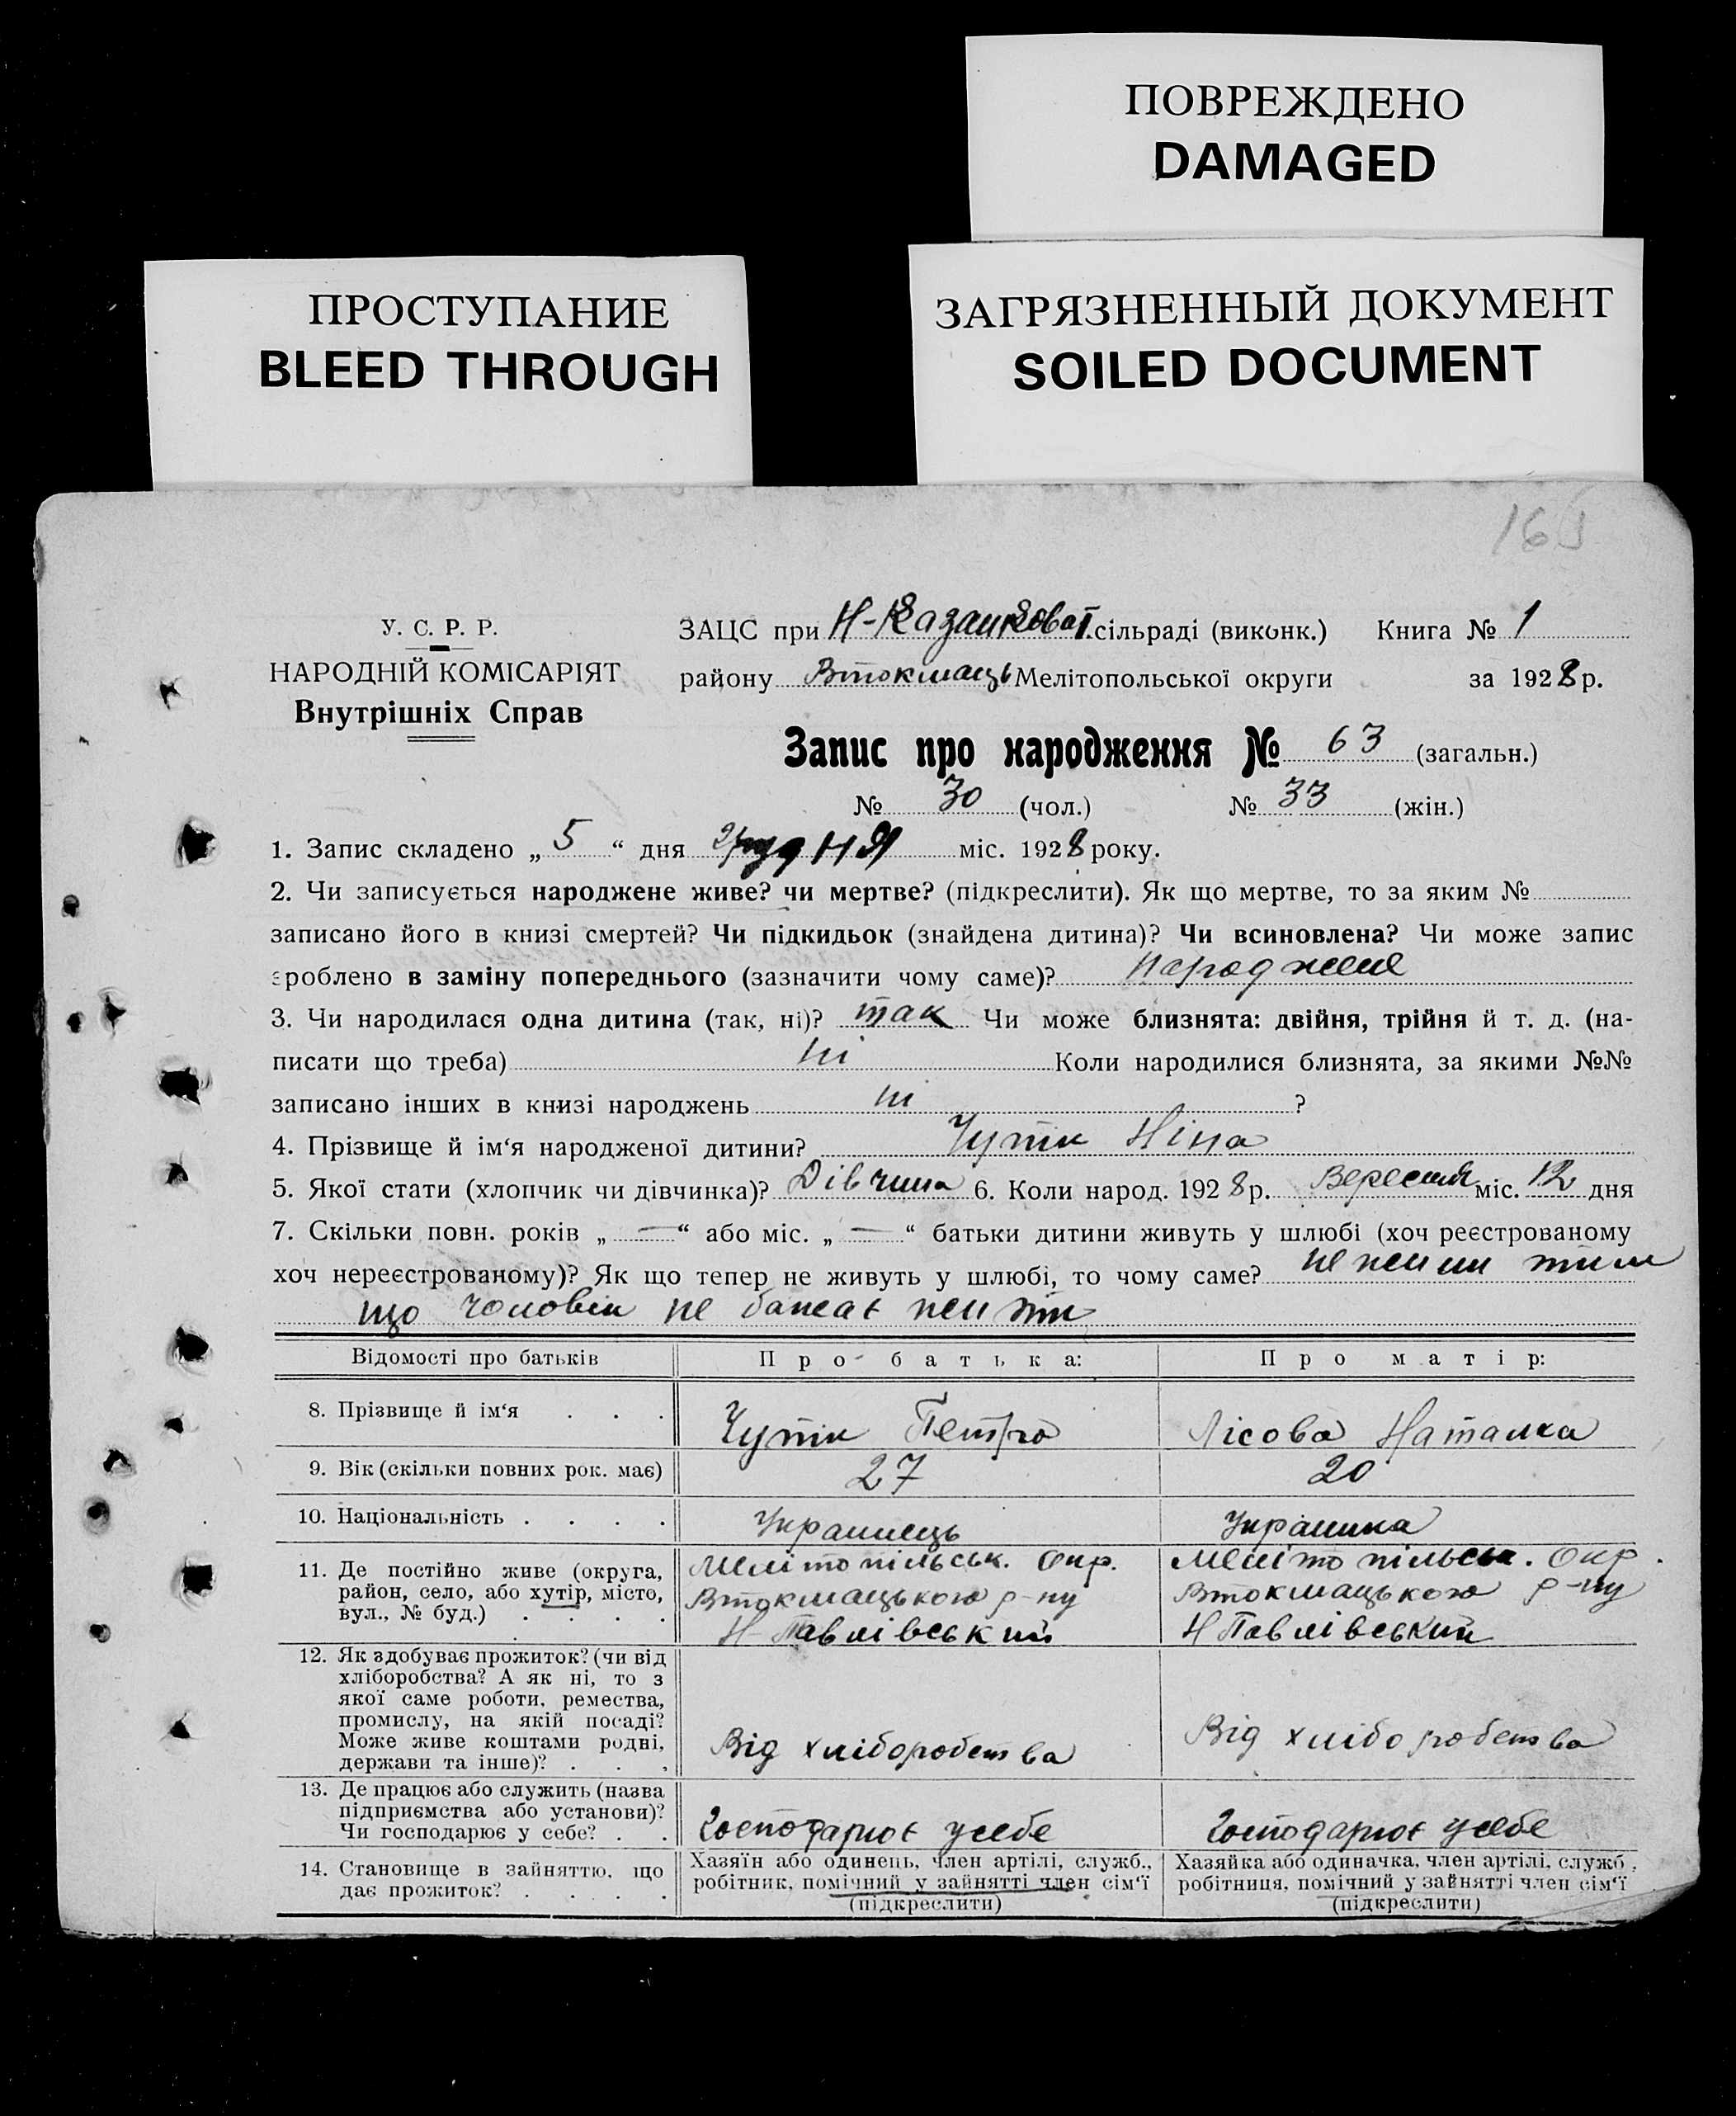 ПОВРЕЖДЕНО
DAMAGED
ПРОСТУПАНИЕ
BLEED THROUGH
ЗАГРЯЗНЕННЫЙ ДОКУМЕНТ
SOILED DOCUMENT
У. С. Р. Р.
НАРОДНІЙ КОМІСАРІЯТ
Внутрішніх Справ
ЗАЦС при сільраді (виконк.) Книга № 1
району Втокмаць Мелітопольської округи за 1928 р.
Запис про народження № 63 (загальн.)
№ 30 (чол.) № 33 (жін.)
1. Запис складено „ 5 “ дня грудня міс. 1928 року.
2. Чи записується народжене живе? чи мертве? (підкреслити). Як що мертве, то за яким №
записано його в книзі смертей? Чи підкидьок (знайдена дитина)? Чи всиновлена? Чи може запис
зроблено в заміну попереднього (зазначити чому саме)?
3. Чи народилася одна дитина (так, ні)? так Чи може близнята: двійня, трійня й т. д. (на-
писати що треба) ні Коли народилися близнята, за якими №№
записано інших в книзі народжень ні ?
4. Прізвище й ім‘я народженої дитини? Чутік Ніна
5. Якої стати (хлопчик чи дівчинка)? Дівчина 6. Коли народ. 1928 р. Вересня міс. 12 дня
7. Скільки повн. років „ — “ або міс. „ — “ батьки дитини живуть у шлюбі (хоч реєстрованому
хоч нереєстрованому)? Як що тепер не живуть у шлюбі, то чому саме? не
що чоловік не бажає жити
Відомості про батьків Про батька: Про матір:
8. Прізвище й ім‘я . . . Чутік Петро Лісова Наталка
9. Вік (скільки повних рок. має) 27 20
10. Національність . . . . Українець Українка
11. Де постійно живе (округа,
район, село, або хутір, місто,
вул., № буд.) . . . .
Мелітопільськ. Окр.
Втокмацького р-ну
Н-Павлівський
Мелітопільськ. Окр.
Втокмацького р-ну
Н Павлівський
12. Як здобуває прожиток? (чи від
хліборобства? А як ні, то з
якої саме роботи, ремества,
промислу, на якій посаді?
Може живе коштами родні,
держави та інше)? . . .
Від хліборобства
Від хліборобства
13. Де працює або служить (назва
підприємства або установи)?
Чи господарює у себе? . .
Господарює усебе
Господарює усебе
14. Становище в зайняттю, що
дає прожиток? . . . .
Хазяїн або одинець, член артілі, служб.,
робітник, помічний у зайнятті член сім‘ї
(підкреслити)
Хазяйка або одиначка, член артілі, служб.,
робітниця, помічний у зайнятті член сім‘ї
(підкреслити)